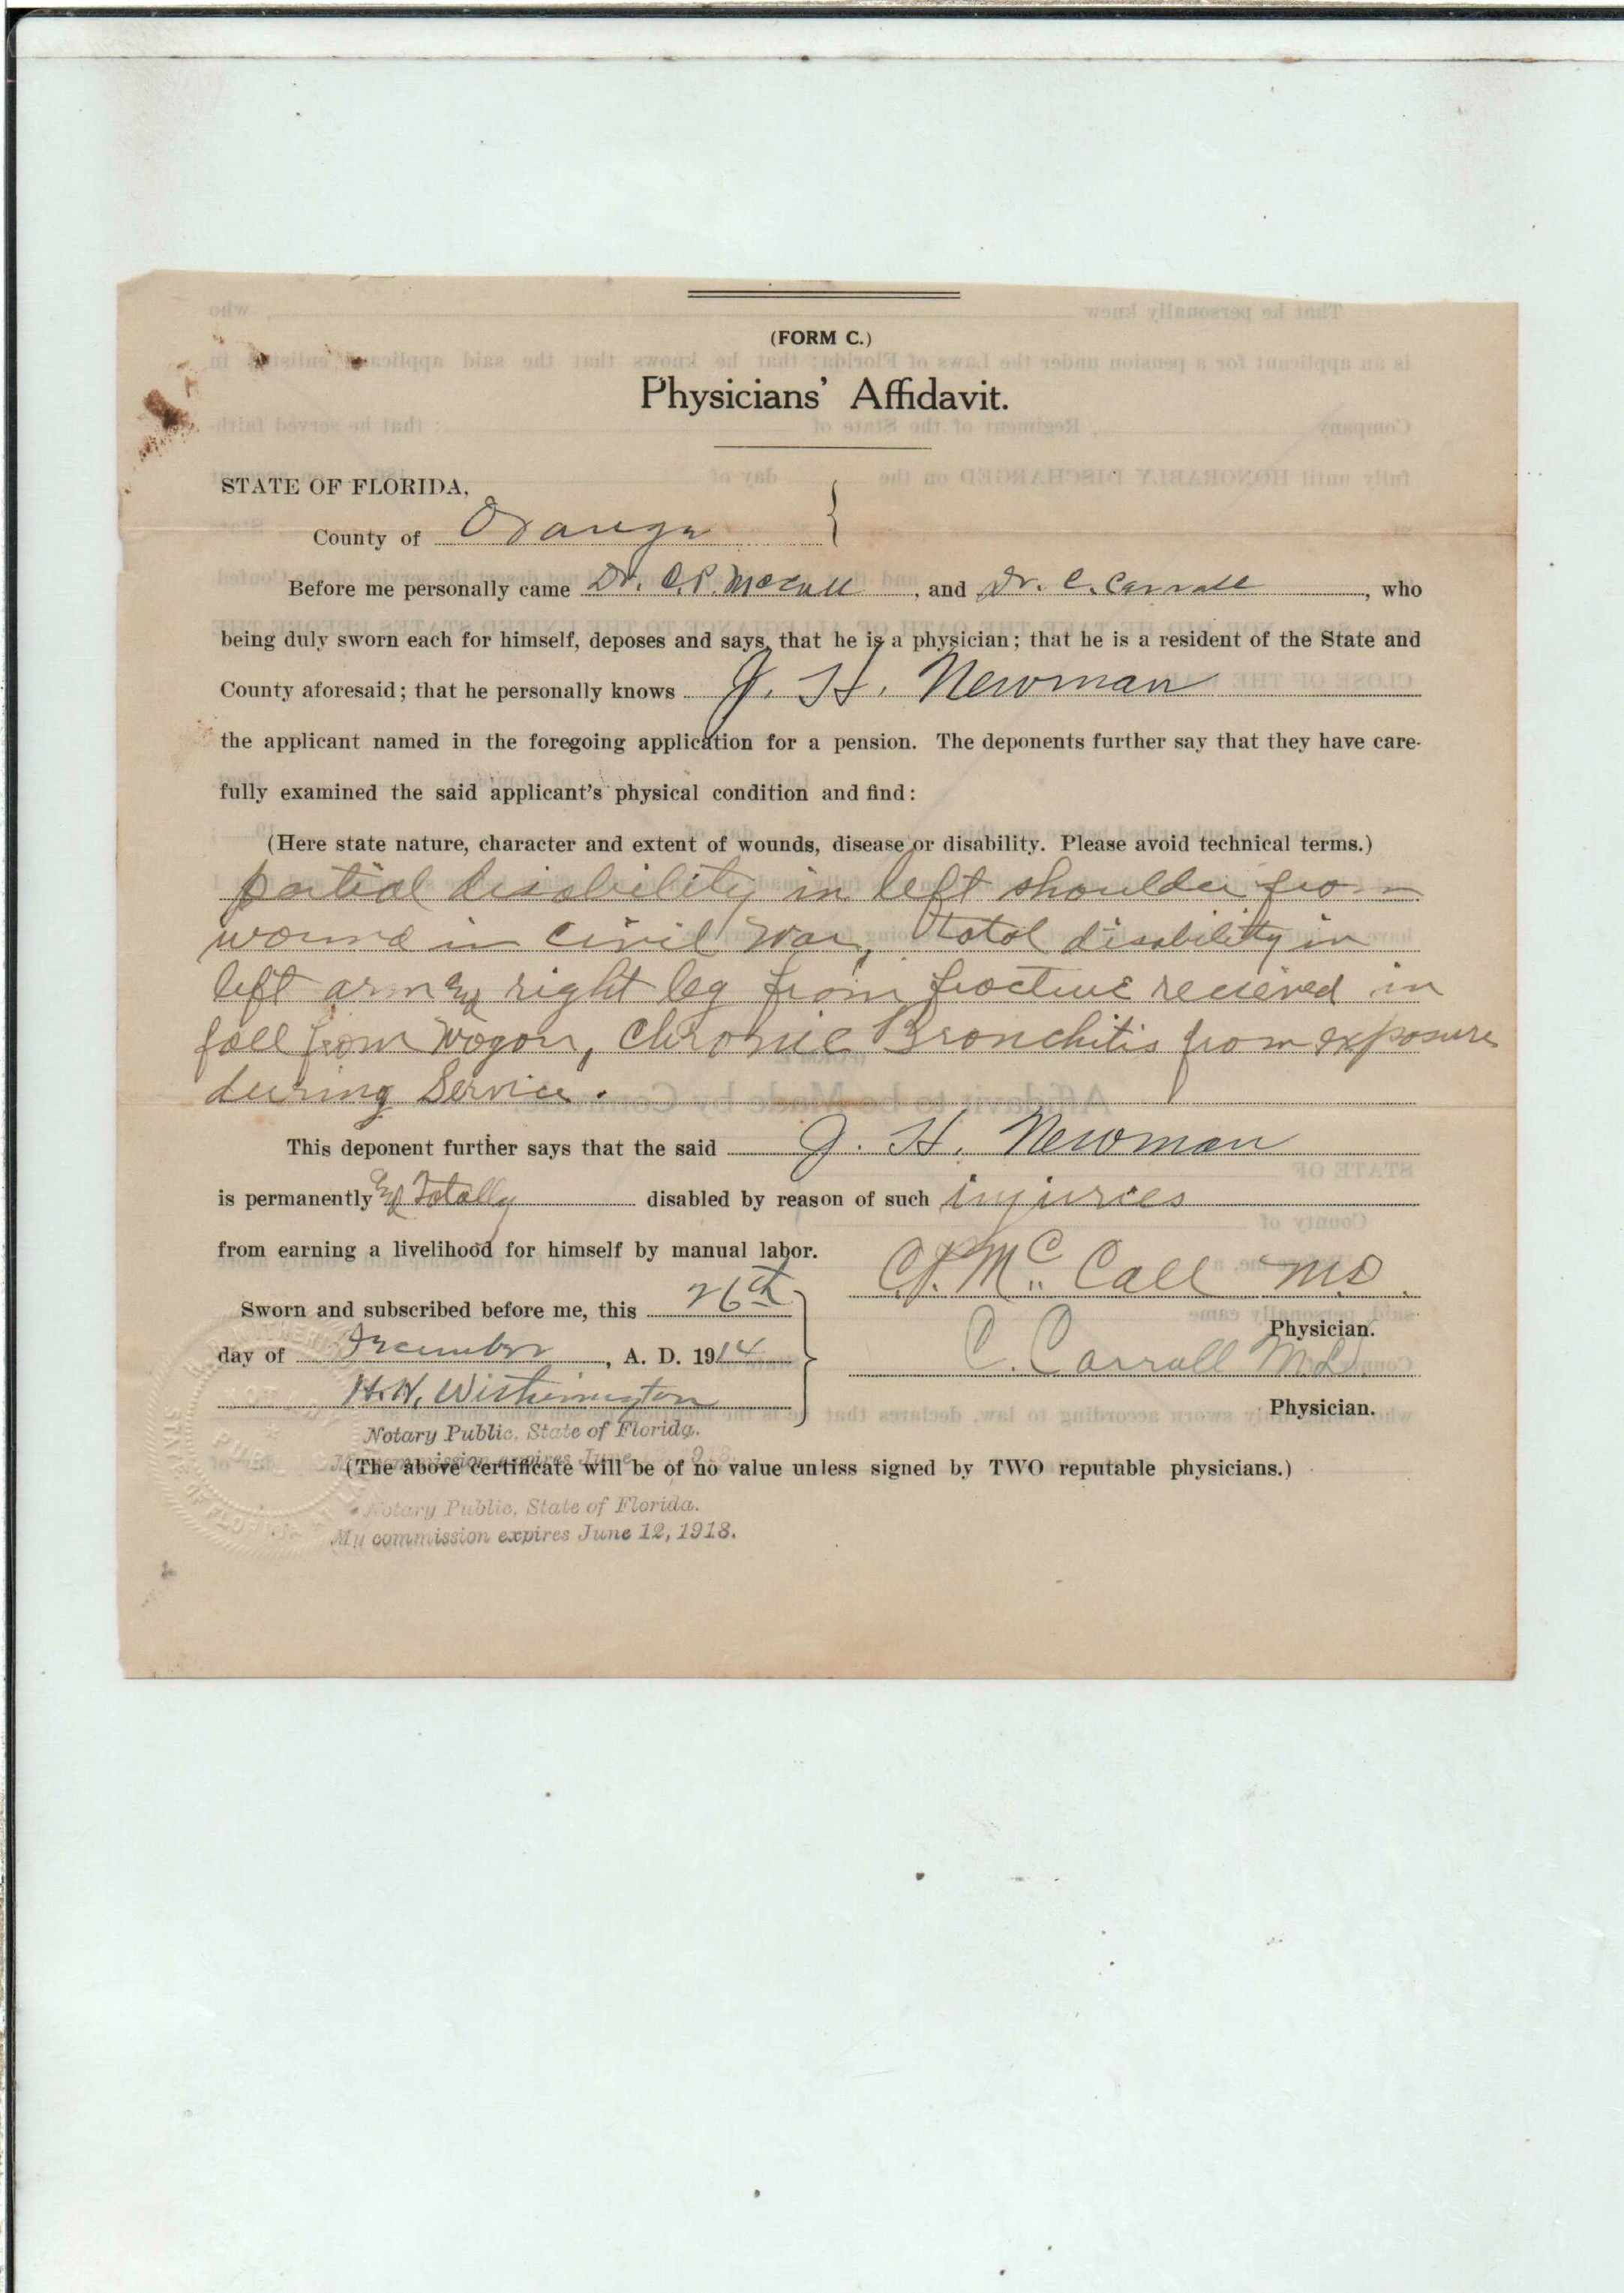 (FORM C.)
Physicians' Affidavit.
STATE OF FLORIDA,
County of Orange
Before me personally came Dr. C.P. McCall, and Dr. C. Carroll, who
being duly sworn each for himself, deposes and says, that he is a physician; that he is a resident of the State and
County aforesaid; that he personally knows J. H. Newman
the applicant named in the foregoing application for a pension. The deponents further say that they have care-
fully examined the said applicant's physical condition and find:
(Here state nature, character and extent of wounds, disease or disability. Please avoid technical terms.)
partial disability in left shoulder from
wound in civil war, total disability in
left arm & right leg from fracture recieved in
fall from wogon, Chronic Bronchitis from exposure
during Service.
This deponent further says that the said J. H. Newman
is permanently & Totally disabled by reason of such injuries
from earning a livelihood for himself by manual labor.
C.P. McCall MD.
Sworn and subscribed before me, this 26th
Physician.
day of December, A. D. 1914
C. Carroll M.D.
H.H. Witherington
Physician.
Notary Public, State of Florida.
(The above certificate will be of no value unless signed by TWO reputable physicians.)
Notary Public, State of Florida.
My commission expires June 12, 1918.